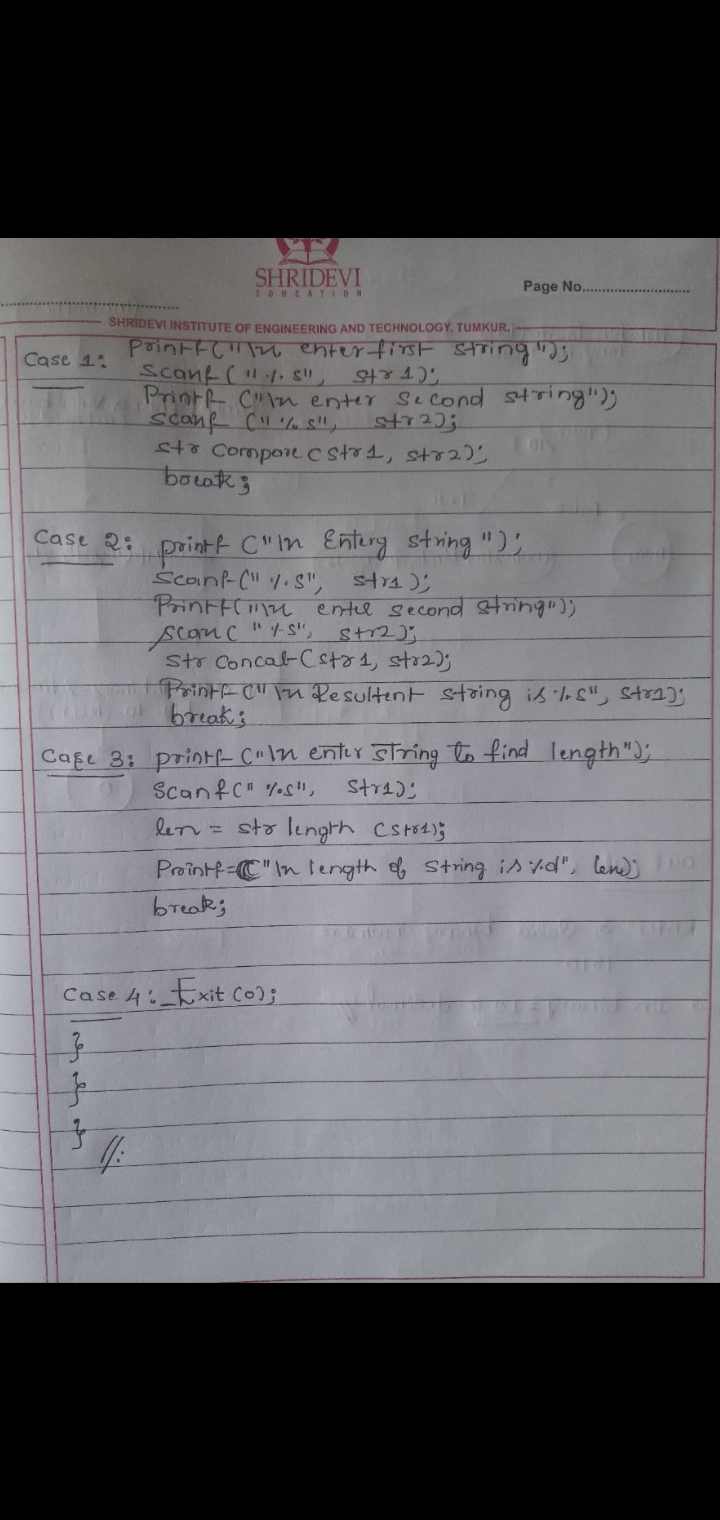 SHRIDEVI
EDUCATION
Page No..........................
SHRIDEVI INSTITUTE OF ENGINEERING AND TECHNOLOGY, TUMKUR.
Case 1: Printf("\n enter first string");
Scanf("%s", str1);
Printf ("\n enter second string");
scanf ("%s", str2);
str compare (str1, str2);
break;
Case 2: printf ("\n Enterg string");
Scanf("%s", str1);
Printf("\n enter second string");
scan("%s", str2);
str concat (str1, str2);
Printf ("\n Resultent string is %s", str1);
break;
Case 3: printf ("\n enter string to find length");
Scanf(" %s", str1);
len = str length (str1);
Printf=("\n length of string is %d", len);
break;
Case 4: Exit (0);
}
}
}
//: